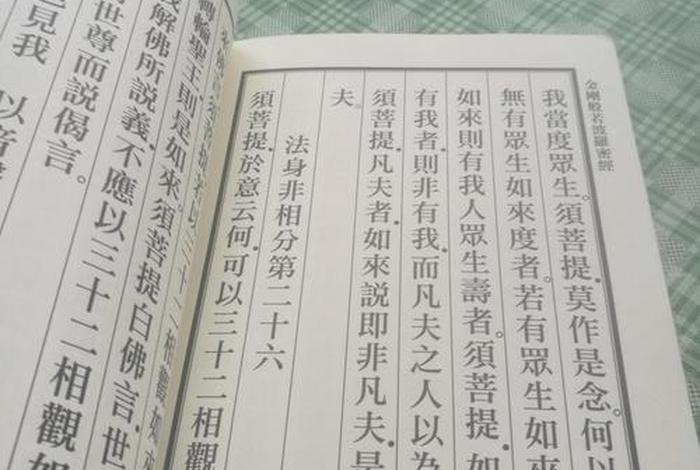 金剛般若波羅密經
我當度眾生。須菩提.莫作是念。何以
無有眾生如來度者。若有眾生如來
如來則有我人眾生壽者。須菩提.如
有我者.則非有我.而凡夫之人以為
須菩提.凡夫者.如來說即非凡夫.是
夫。
法身非相分第二十六
須菩提.於意云何.可以三十二相觀
以三十二相觀如來
轉輪聖王則是如來。須菩提白佛言.世
我解佛所說義.不應以三十二相觀如
時世尊而說偈言。
見我 以音